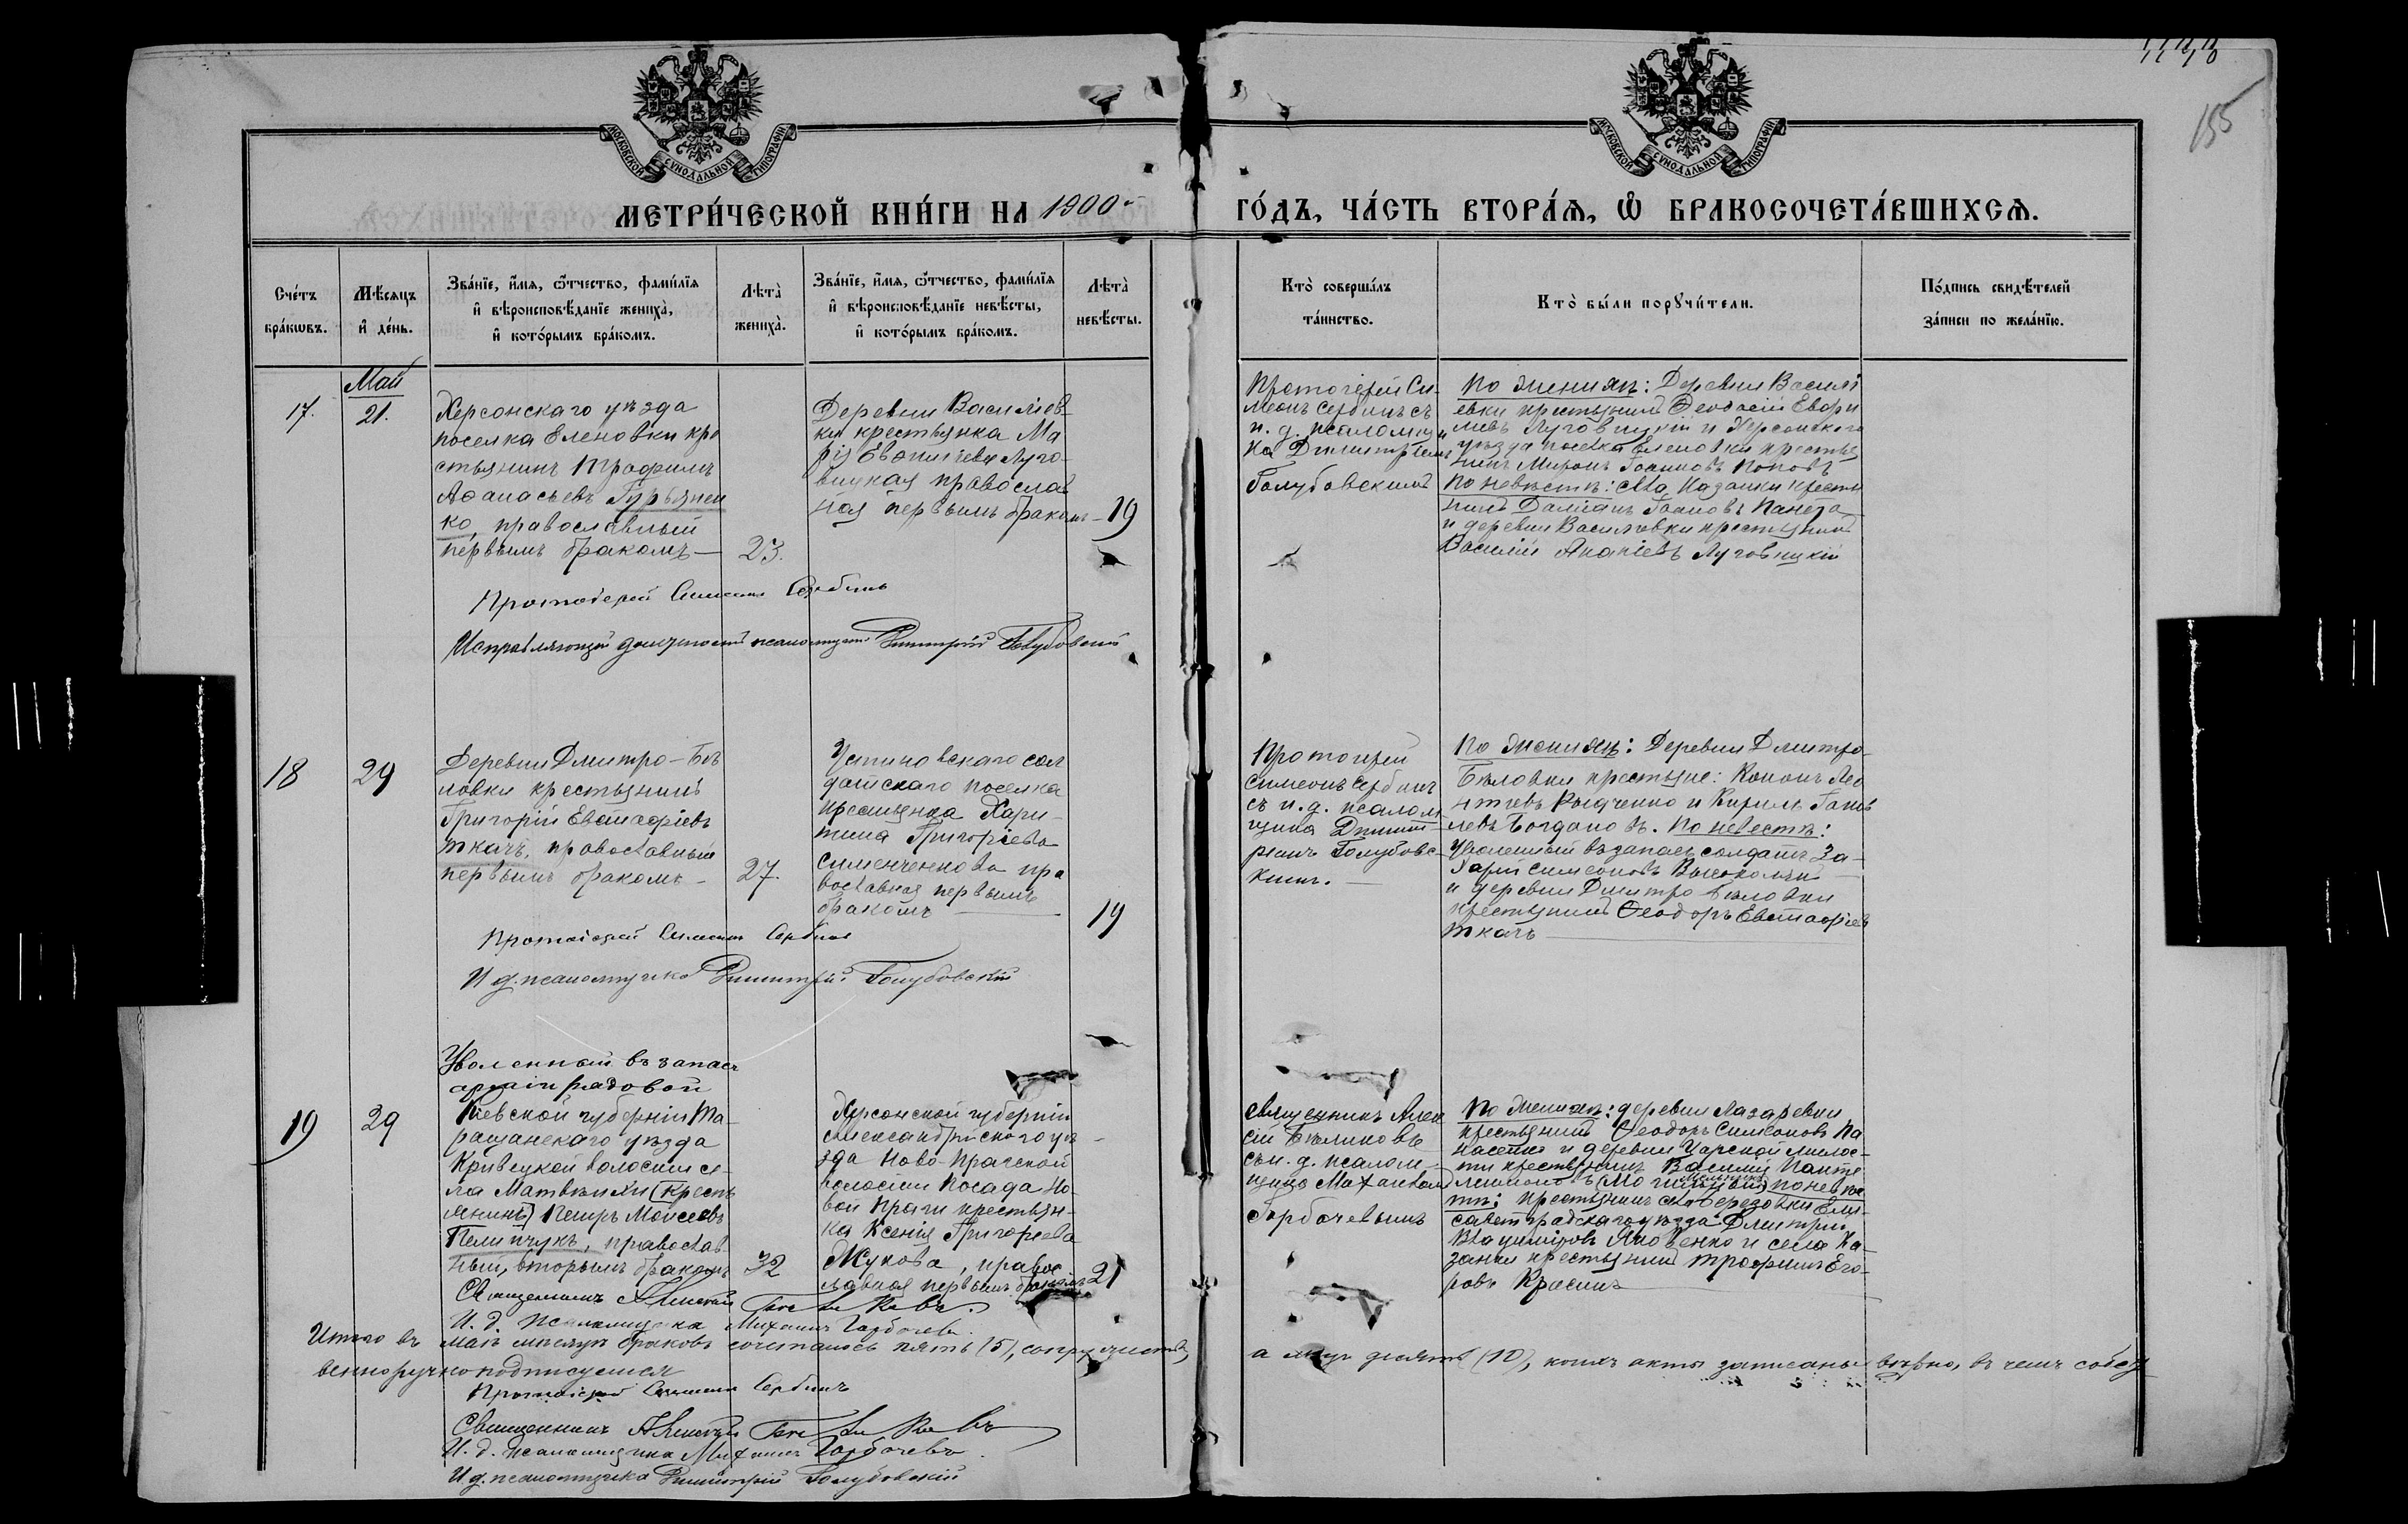 155
МОСКОВСКОЙ СѴНОДАЛЬНОЙ ТИПОГРАФІИ
МОСКОВСКОЙ СѴНОДАЛЬНОЙ ТИПОГРАФІИ
МЕТРИ́ЧЕСКОЙ КНИ́ГИ НА 1900
ГО́ДЪ, ЧА́СТЬ ВТОРА́Ѧ, Ѽ БРАКОСОЧЕТА́ВШИХСѦ.
Сче́тъ
бра́кѡвъ.
Мѣ́сѧцъ
и҆ де́нь.
Зва́нїе, и҆́мѧ, ѻ҆́тчество, фами́лїѧ
и҆ вѣроисповѣ́данїе жениха̀,
и҆ кото́рымъ бра́комъ.
Лѣта̀
жениха̀.
Зва́нїе, и҆́мѧ, ѻ҆́тчество, фами́лїѧ
и҆ вѣроисповѣ́данїе невѣ́сты,
и҆ кото́рымъ бра́комъ.
Лѣта̀
невѣ́сты.
Кто̀ соверша́лъ
та́инство.
Кто̀ бы́ли порꙋчи́тели.
По́дпись свидѣ́телей
за́писи по жела́нїю.
Май
17.
21.
Херсонскаго уѣзда
поселка Еленовки кре
стьянинъ Трофимъ
Аѳанасьевъ Гурьянен
ко, православный
первымъ бракомъ —
23.
Деревни Василіев-
ки крестьянка Ма
рія Луго-
вицкая православ
ная первымъ бракомъ —
19
Протоіерей Си-
меонъ Сербинъ съ
и. д. псаломщи
ка Димитріемъ
Голубовскимъ
По женихѣ: Деревни Василі
евки крестьянинъ Ѳеодосій
Луговицкій и Херсонскаго
уѣзда поселка Еленовки крестья
нинъ Миронъ Іоанновъ Поповъ
По невѣстѣ: села Казанки крестья
нинъ Даміанъ Іоанновъ
и деревни Василіевки крестьянинъ
Василій Ананіевъ Луговицкій
Протоіерей Симеонъ Сербинъ
Исправляющій должность псаломщика Димитрій Голубовскій
18
29
Деревни Дмитро-Бѣ
ловки крестьянинъ
Григорій Евстаѳіевъ
Ткачъ, православный
первымъ бракомъ —
27.
Устиновскаго сол
датскаго поселка
крестьянка Хари-
тина Григоріева
Сименченкова пра
вославная первымъ
бракомъ —
19
Протоіерей
Симеонъ Сербинъ
съ и. д. псалом
щика Димит-
ріемъ Голубовс-
кимъ. —
По женихѣ: Деревни Дмитро-
Бѣловки крестьяне: Кононъ Лео
нтіевъ и Кирилъ
Богдановъ. По невѣстѣ:
Уволенный въ запасъ солдатъ За-
харій Симеоновъ
и деревни Дмитро-Бѣловки
крестьянинъ Ѳеодоръ Евстаѳіевъ
Ткачъ —
Протоіерей Симеонъ Сербинъ
И. д. псаломщика Димитрій Голубовскій
19
29
Уволенный въ запасъ
арміи рядовой
Кіевской губерніи Та-
ращанскаго уѣзда
Кривецкой волости се-
ла Матвѣихи (кресть
янинъ) Петръ Моисеевъ
Пелипчукъ, православ-
ный, вторымъ бракомъ
32
Херсонской губерніи
Александрійскаго уѣ-
зда Ново-Пражской
волости Посада Но-
вой Праги крестьян-
ка Ксенія Григоріева
Жукова, правос
лавная первымъ бракомъ
21
Священникъ Алек
сій Бѣликовъ
съ и. д. псалом-
щика Михаиломъ
Горбачевымъ
По женихѣ: деревни Лазаревки
крестьянинъ Ѳеодоръ Симеоновъ Па
насенко и деревни Царской милос-
ти крестьянинъ Василій Панте
леимоновъ по невѣс
тѣ: крестьянинъ села Березовки Ели-
саветградскаго уѣзда Димитрій
Владиміровъ Яковенко и села Ка-
занки крестьянинъ Трофимъ Его-
ровъ Красинъ —
Священникъ Алексій Бѣликовъ.
И. д. Псаломщика Михаилъ Горбачевъ.
Итого въ маѣ мѣсяцѣ браковъ сочеталось пять (5), супружествъ,
а лицъ десять (10), коихъ акты записаны вѣрно, въ чемъ собст
венноручно подписуемся
Протоіерей Симеонъ Сербинъ
Священникъ Алексій Бѣликовъ
И. д. псаломщика Михаилъ Горбачевъ.
И. д. псаломщика Димитрій Голубовскій